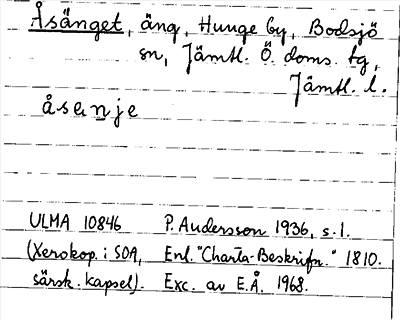 Åsänget, äng, Hunge by, Bodsjö
sn, Jämtl. Ö. doms. tg,
Jämtl. l.
åsenje
ULMA 10846 P. Andersson 1936, s. 1.
(Xerokop. i SOA, Enl. "Charta-Beskrifn." 1810.
särsk. kapsel). Exc. av E.Å. 1968.